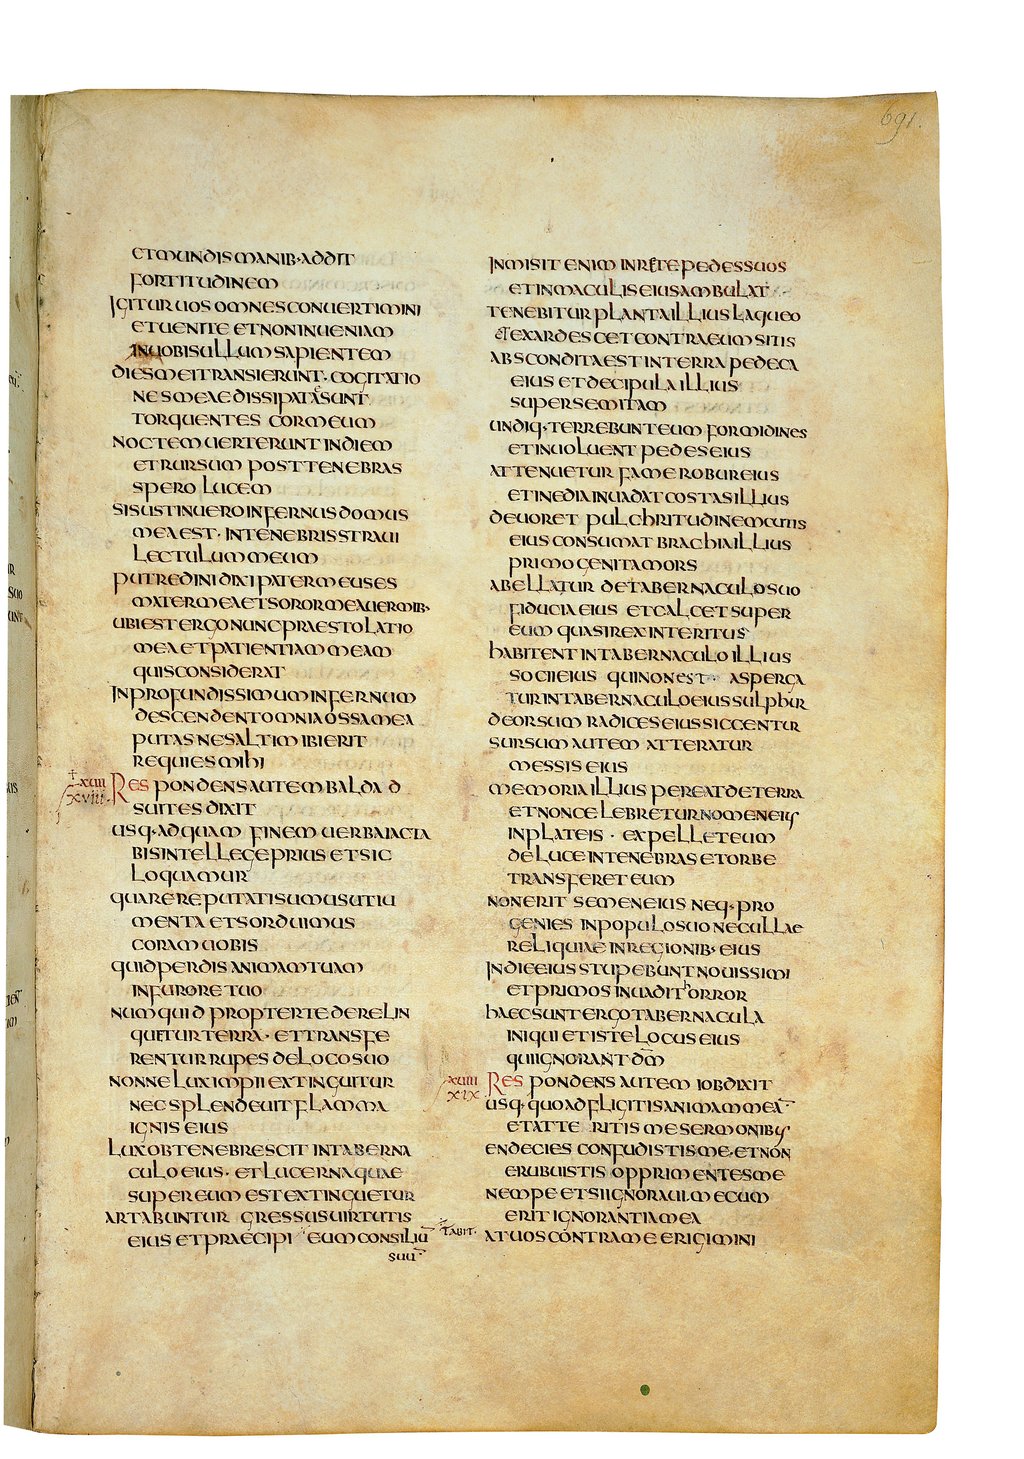 691.
ETMUNDIS MANIB· ADDIT
FORTITUDINEM
IGITUR UOS OMNES CONUERTIMINI
ET UENITE ET NON INUENIAM
IN UOBIS ULLUM SAPIENTEM
DIES MEI TRANSIERUNT· COGITATIO
NES MEAE DISSIPATAE SUNT
TORQUENTES COR MEUM
NOCTEM UERTERUNT IN DIEM
ET RURSUM POST TENEBRAS
SPERO LUCEM
SI SUSTINUERO INFERNUS DOMUS
MEA EST· IN TENEBRIS STRAUI
LECTULUM MEUM
PUTREDINI DIXI PATER MEUS ES
MATER MEA ET SOROR MEA UERMIB·
UBI EST ERGO NUNC PRAESTOLATIO
MEA ET PATIENTIAM MEAM
QUIS CONSIDERAT
IN PROFUNDISSIMUM INFERNUM
DESCENDENT OMNIA OSSA MEA
PUTASNE SALTIM IBI ERIT
REQUIES MIHI
XUIII RESPONDENS AUTEM BALDAD
XVIII· SUITES DIXIT
USQ· AD QUAM FINEM UERBA IACTA
BIS INTELLEGE PRIUS ET SIC
LOQUAMUR
QUARE REPUTATI SUMUS UT IU
MENTA ET SORDUIMUS
CORAM UOBIS
QUID PERDIS ANIMAM TUAM
IN FURORE TUO
NUMQUID PROPTER TE DERELIN
QUETUR TERRA· ET TRANSFE
RENTUR RUPES DE LOCO SUO
NONNE LUX IMPII EXTINGUITUR
NEC SPLENDEUIT FLAMMA
IGNIS EIUS
LUX OBTENEBRESCIT IN TABERNA
CULO EIUS· ET LUCERNA QUAE
SUPER EUM EST EXTINGUETUR
ARTABUNTUR GRESSUS UIRTUTIS
EIUS ET PRAECIPI EUM CONSILIŪ TABIT·
SUŪ
INMISIT ENIM IN RETE PEDES SUOS
ET IN MACULIS EIUS AMBULAT
TENEBITUR PLANTA ILLIUS LAQUEO
ET EXARDESCET CONTRA EUM SITIS
ABSCONDITA EST IN TERRA PEDICA
EIUS ET DECIPULA ILLIUS
SUPER SEMITAM
UNDIQ· TERREBUNT EUM FORMIDINES
ET INUOLUENT PEDES EIUS
ATTENUETUR FAME ROBUR EIUS
ET INEDIA INUADAT COSTAS ILLIUS
DEUORET PULCHRITUDINEM CUTIS
EIUS CONSUMAT BRACHIA ILLIUS
PRIMOGENITA MORS
ABELLATUR DE TABERNACULO SUO
FIDUCIA EIUS ET CALCET SUPER
EUM QUASI REX INTERITUS
HABITENT IN TABERNACULO ILLIUS
SOCII EIUS QUI NON EST· ASPERGA
TUR IN TABERNACULO EIUS SULPHUR
DEORSUM RADICES EIUS SICCENTUR
SURSUM AUTEM ATTERATUR
MESSIS EIUS
MEMORIA ILLIUS PEREAT DE TERRA
ET NON CELEBRETUR NOMEN EIUS
IN PLATEIS· EXPELLET EUM
DE LUCE IN TENEBRAS ET ORBE
TRANSFERET EUM
NON ERIT SEMEN EIUS NEQ· PRO
GENIES IN POPULO SUO NEC ULLAE
RELIQUIAE IN REGIONIB· EIUS
IN DIE EIUS STUPEBUNT NOUISSIMI
ET PRIMOS INUADIT HORROR
HAEC SUNT ERGO TABERNACULA
INIQUI ET ISTE LOCUS EIUS
QUI IGNORANT DM̄
XUIIII RESPONDENS AUTEM IOB DIXIT
XIX USQ· QUO ADFLIGITIS ANIMAM MEĀ
ET ATTERITIS ME SERMONIBUS
EN DECIES CONFUDISTIS ME· ET NON
ERUBUISTIS OPPRIMENTES ME
NEMPE ET SI IGNORAUI MECUM
ERIT IGNORANTIA MEA
AT UOS CONTRA ME ERIGIMINI